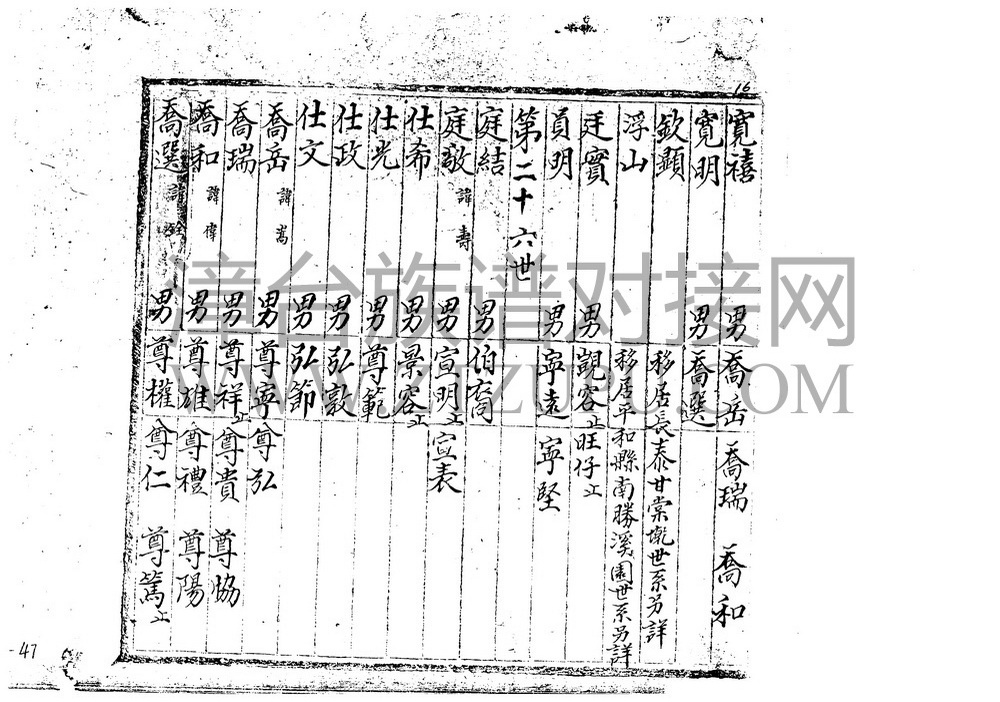 16
寬禧 男 喬岳 喬瑞 喬和
寬明 男 喬選
欽顯 移居長泰甘棠墘世系另詳
浮山 移居平和縣南勝溪園世系另詳
廷實 男 觀容止 旺仔止
員明 男 寧遠 寧堅
第二十六世
庭結 男 伯裔
庭敬 諱壽 男 宣明止 宣表
仕希 男 景容止
仕光 男 尊範
仕政 男 弘敦
仕文 男 弘節
喬岳 諱嵩 男 尊寧 尊弘
喬瑞 男 尊祥止 尊貴 尊協
喬和 諱偉 男 尊雄 尊禮 尊陽
喬選 諱 男 尊權 尊仁 尊篤止
漳台族谱对接网
WWW.ZZUPU.COM
-47